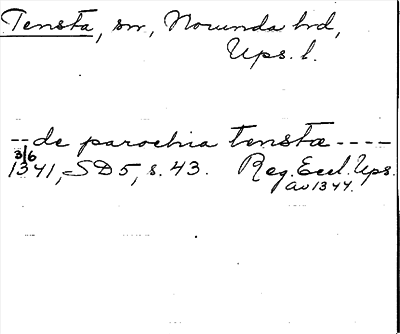 Tensta, sn, Norunda hd,
Ups. l.
-- de parochia tensta ----
3/6
1341, SD 5, s. 43. Reg. Eccl. Ups.
av 1344.